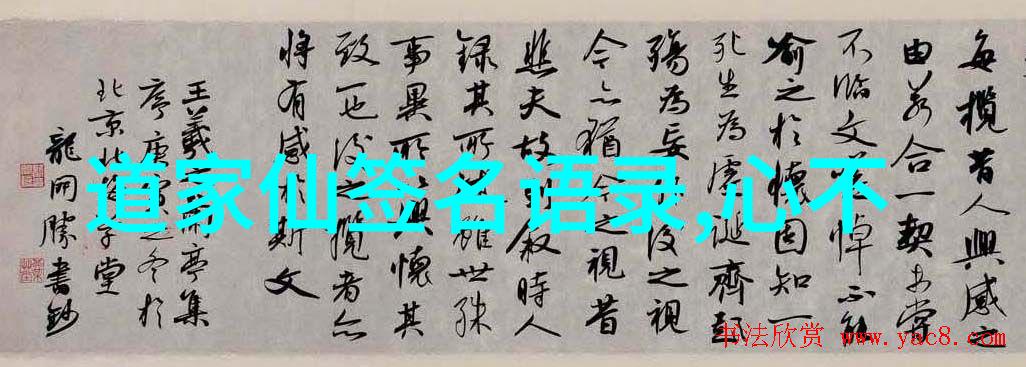 每揽昔人興感之
由若合一契未嘗
不临文嗟悼不能
喻之於懷固知一
死生為虚诞齊彭
殤為妄作後之視
今亦猶今之視昔
悲夫故列叙時人
録其所述雖世殊
事異所以興懷其
致一也後之攬者亦
将有感於斯文
王羲之蘭亭集
序庚寅之冬於
北京北
堂
龍開勝書鈔
道家仙签名语录,心不
书法欣赏 www.yac8.com